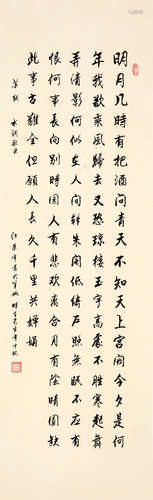 明月几時有把酒问青天不知天上宫阙今夕是何
年我欲乘風歸去又恐瓊樓玉宇高處不胜寒起舞
弄清影何似在人间转朱阁低绮户照無眠不應有
恨何事長向别時圆人有悲歡離合月有陰晴圆缺
此事古難全但愿人長久千里共嬋娟
苏轼 水调歌头